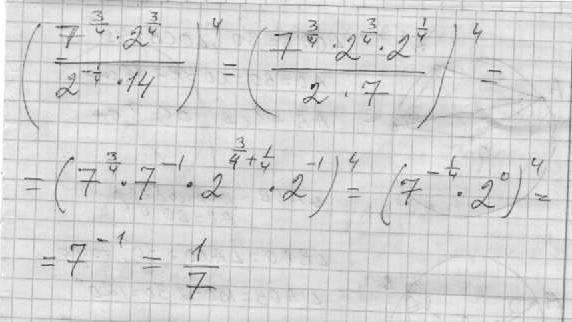 (7^{3/4} · 2^{3/4} / 2^{-1/4} · 14)^4 = (7^{3/4} · 2^{3/4} · 2^{1/4} / 2 · 7)^4 =
= (7^{3/4} · 7^{-1} · 2^{3/4+1/4} · 2^{-1})^4 = (7^{-1/4} · 2^0)^4 =
= 7^{-1} = 1/7